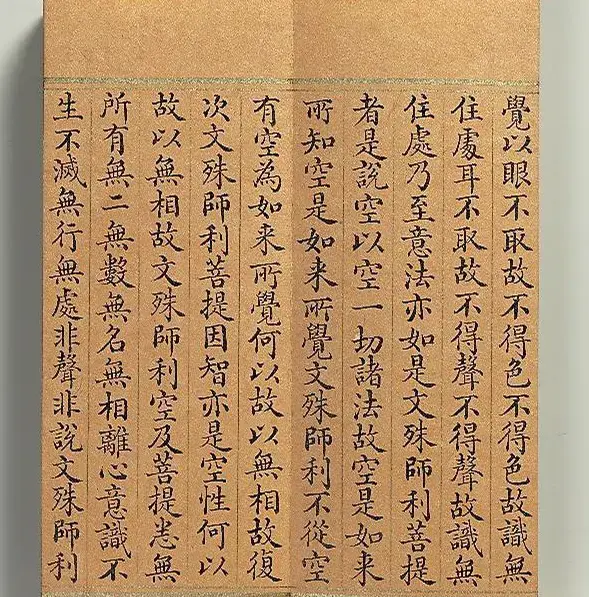 覺以眼不取故不得色不得色故識無
住處耳不取故不得聲不得聲故識無
住處乃至意法亦如是文殊師利菩提
者是說空以空一切諸法故空是如来
所知空是如来所覺文殊師利不從空
有空為如来所覺何以故以無相故復
次文殊師利菩提因智亦是空性何以
故以無相故文殊師利空及菩提悉無
所有無二無數無名無相離心意識不
生不滅無行無處非聲非說文殊師利